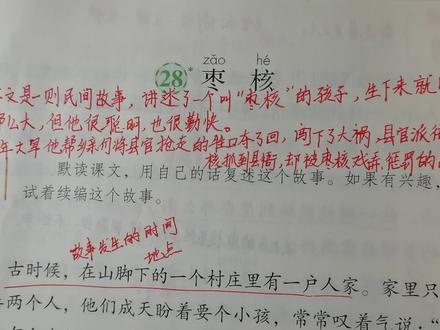 zǎo hé
28* 枣核
文是一则民间故事，讲述了一个叫"枣核"的孩子，生下来就
那么大，但他很聪明，也很勤快。
年大旱他帮乡亲们将县官抢走的牲口夺了回，闯下了大祸，县官派
核抓到县衙，却被枣核戏弄，惩罚的
默读课文，用自己的话复述这个故事。如果有兴趣，
试着续编这个故事。
故事发生的时间
地点
古时候，在山脚下的一个村庄里有一户人家。家里只
两个人，他们成天盼着要个小孩，常常叹着气说："